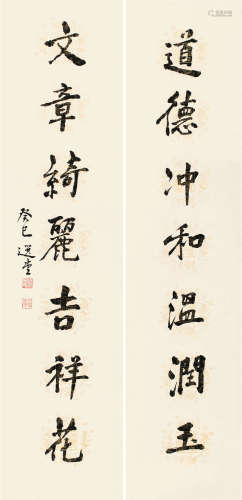 道德冲和溫潤玉
文章綺麗吉祥花
癸巳 選堂